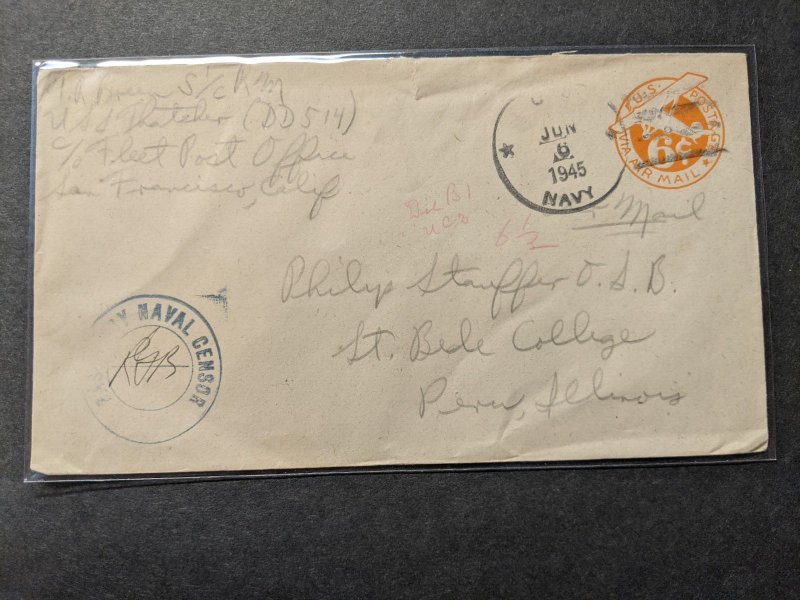 S 1/c
U.S.S. Thatcher (DD 514)
c/o Fleet Post Office
San Francisco, Calif
U.S. POSTAGE
6¢
VIA AIR MAIL
JUN
6
1945
NAVY
Mail
6 1/2
Philip Stauffer O.S.B.
St. Bede College
Peru, Illinois
BY NAVAL CENSOR